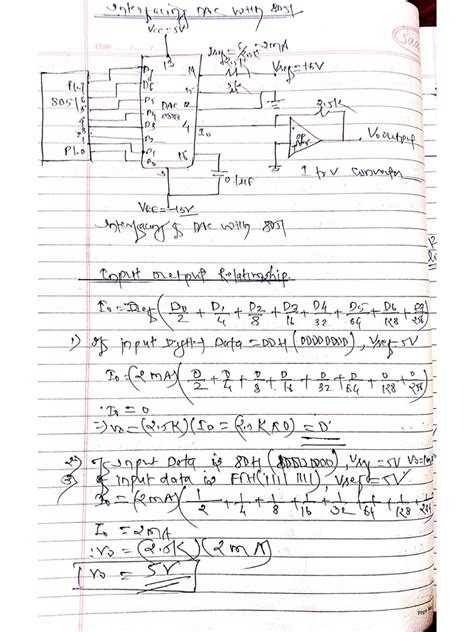 Interfacing DAC with 8051
Vcc = 5V
Iref = 5/2.5k = 2mA
Vref = +5V
P1.7
8051
P1.0
D7
D6
D5
D4
D3
D2
D1
D0
DAC
0808
13
14
15
4
16
Io
2.5k
Vo output
I to V converter
0.1µF
VEE = -15V
Interfacing of DAC with 8051
Input output Relationship
Io = Iref (D0/2 + D1/4 + D2/8 + D3/16 + D4/32 + D5/64 + D6/128 + D7/256)
1) If input Digital Data = 00H (00000000), Vref = 5V
Io = (2mA) (0/2 + 0/4 + 0/8 + 0/16 + 0/32 + 0/64 + 0/128 + 0/256)
∴ Io = 0
⇒ Vo = (2.5K)(Io = (2.5K × 0) = 0
2) If input Data is 80H (10000000), Vref = 5V
3) If input data is FFH (1111 1111), Vref = 5V
Io = (2mA) (1/2 + 1/4 + 1/8 + 1/16 + 1/32 + 1/64 + 1/128 + 1/256
Io = 2mA
∴ Vo = (2.5K)(2mA)
Vo = 5V